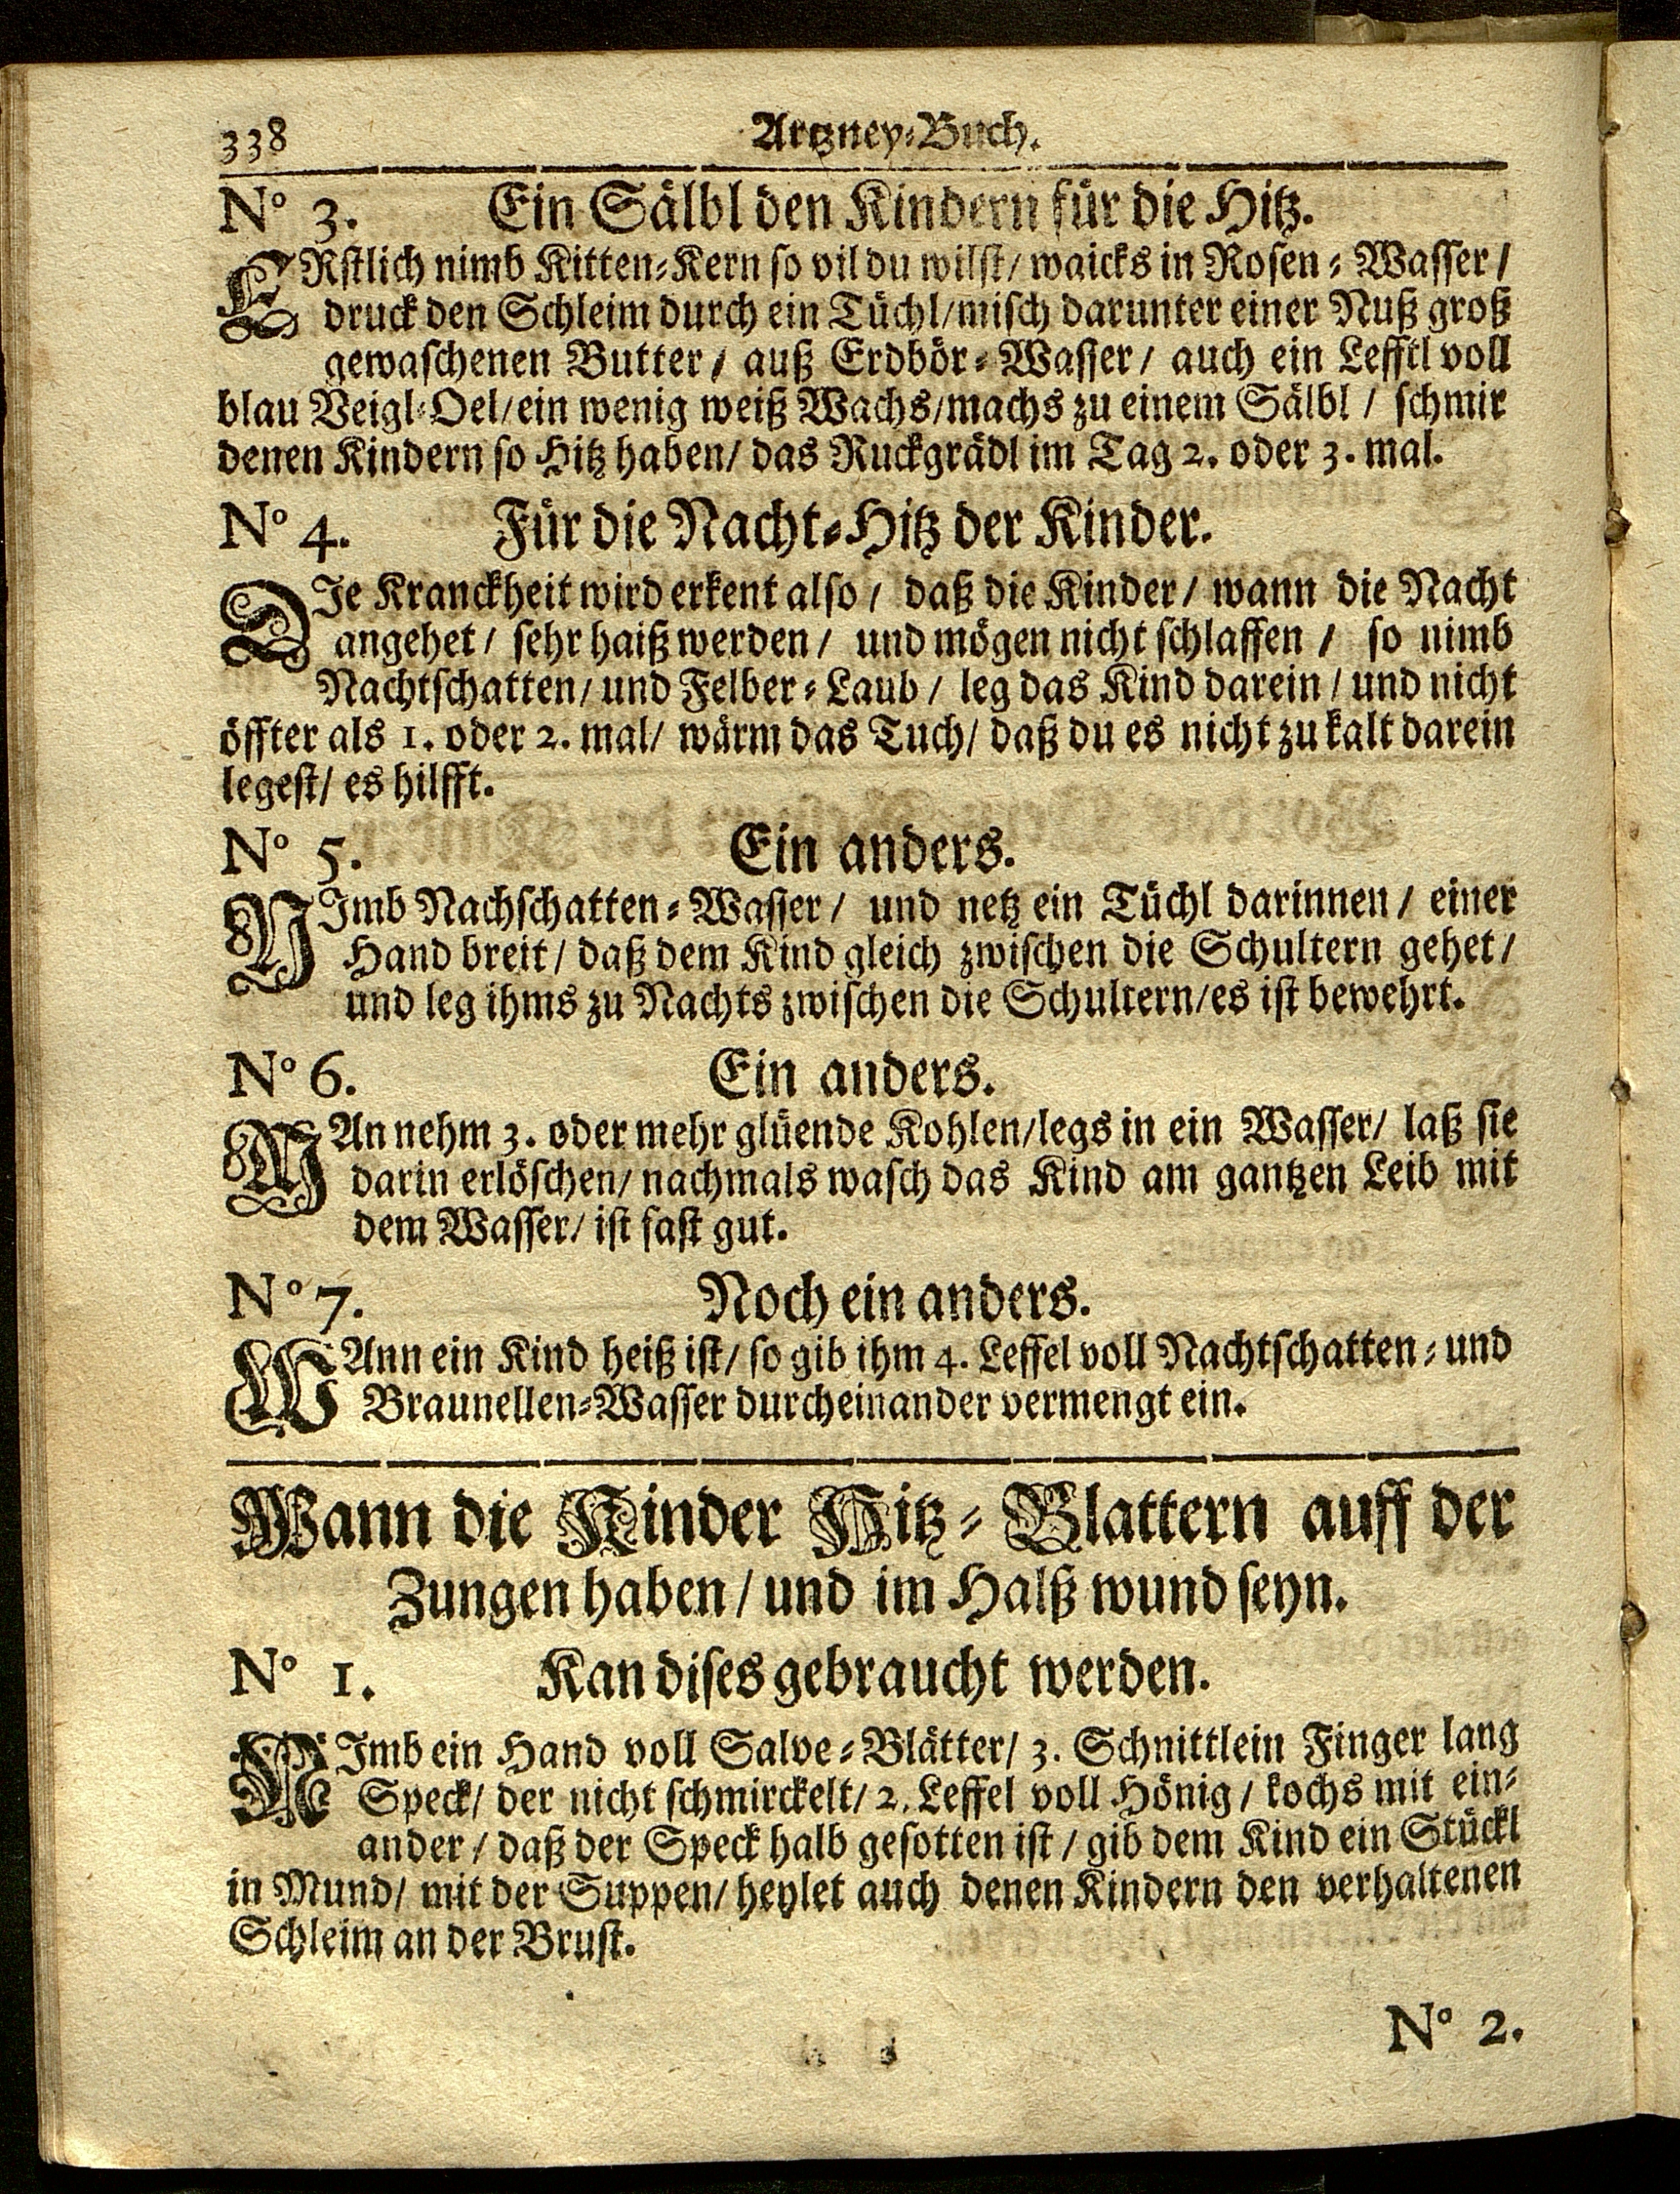 338 Artzney-Buch.
N° 3. Ein Sälbl den Kindern für die Hitz.
ERstlich nimb Kitten-Kern so vil du wilst/ waicks in Rosen-Wasser/
druck den Schleim durch ein Tüchl/ misch darunter einer Nuß groß
gewaschenen Butter/ auß Erdbör-Wasser/ auch ein Lefftl voll
blau Veigl-Oel/ ein wenig weiß Wachs/ machs zu einem Sälbl/ schmir
denen Kindern so Hitz haben/ das Ruckgrädl im Tag 2. oder 3. mal.
N° 4. Für die Nacht-Hitz der Kinder.
DIe Kranckheit wird erkent also/ daß die Kinder/ wann die Nacht
angehet/ sehr haiß werden/ und mögen nicht schlaffen/ so nimb
Nachtschatten/ und Felber-Laub/ leg das Kind darein/ und nicht
öffter als 1. oder 2. mal/ wärm das Tuch/ daß du es nicht zu kalt darein
legest/ es hilfft.
N° 5. Ein anders.
NImb Nachschatten-Wasser/ und netz ein Tüchl darinnen/ einer
Hand breit/ daß dem Kind gleich zwischen die Schultern gehet/
und leg ihms zu Nachts zwischen die Schultern/ es ist bewehrt.
N° 6. Ein anders.
MAn nehm 3. oder mehr glüende Kohlen/ legs in ein Wasser/ laß sie
darin erlöschen/ nachmals wasch das Kind am gantzen Leib mit
dem Wasser/ ist fast gut.
N° 7. Noch ein anders.
WAnn ein Kind heiß ist/ so gib ihm 4. Leffel voll Nachtschatten- und
Braunellen-Wasser durcheinander vermengt ein.
Wann die Kinder Hitz-Blattern auff der
Zungen haben/ und im Halß wund seyn.
N° 1. Kan dises gebraucht werden.
NImb ein Hand voll Salve-Blätter/ 3. Schnittlein Finger lang
Speck/ der nicht schmirckelt/ 2. Leffel voll Hönig/ kochs mit ein-
ander/ daß der Speck halb gesotten ist/ gib dem Kind ein Stückl
in Mund/ mit der Suppen/ heylet auch denen Kindern den verhaltenen
Schleim an der Brust.
N° 2.